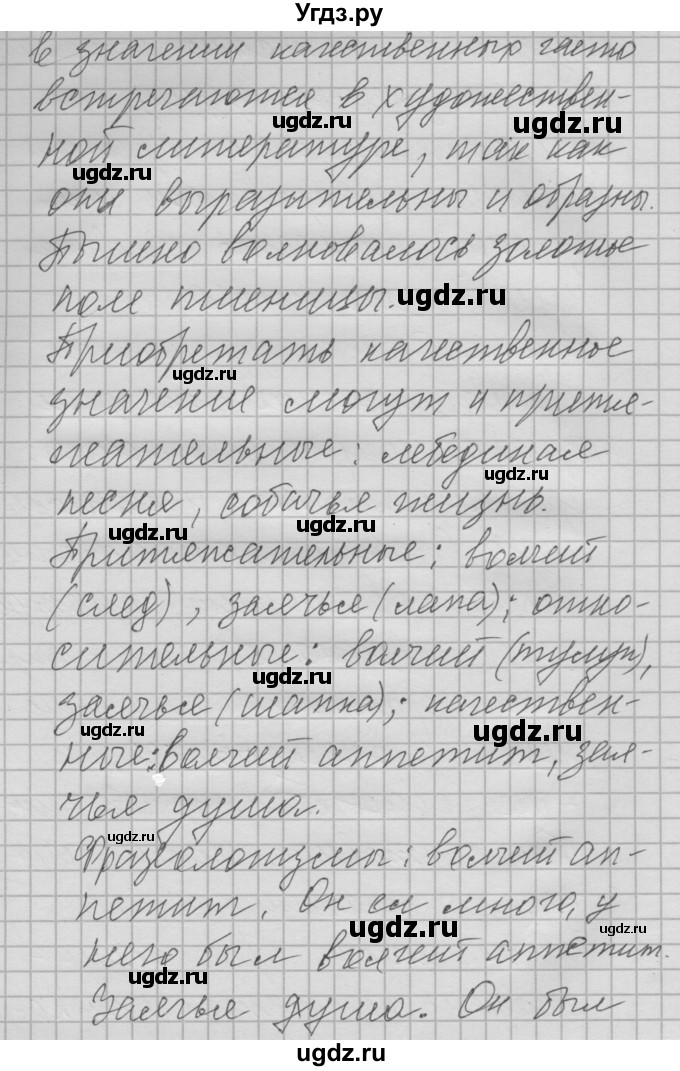 Угдз.ру
в значении качественных часто
встречаются в художествен-
ной литературе, так как
они выразительны и образны.
Пышно волновалось золотые
поле пшеницы.
Приобретать качественное
значение могут и притя-
жательные: лебединая
песня, собачья жизнь.
Притяжательные: волчий
(след), заячья (лапа); отно-
сительные: волчий (тулуп),
заячья (шапка); качествен-
ные: волчий аппетит, зая-
чья душа.
Фразеологизмы: волчий ап-
петит. Он ел много, у
него был волчий аппетит.
Заячья душа. Он был
ugdz.ru